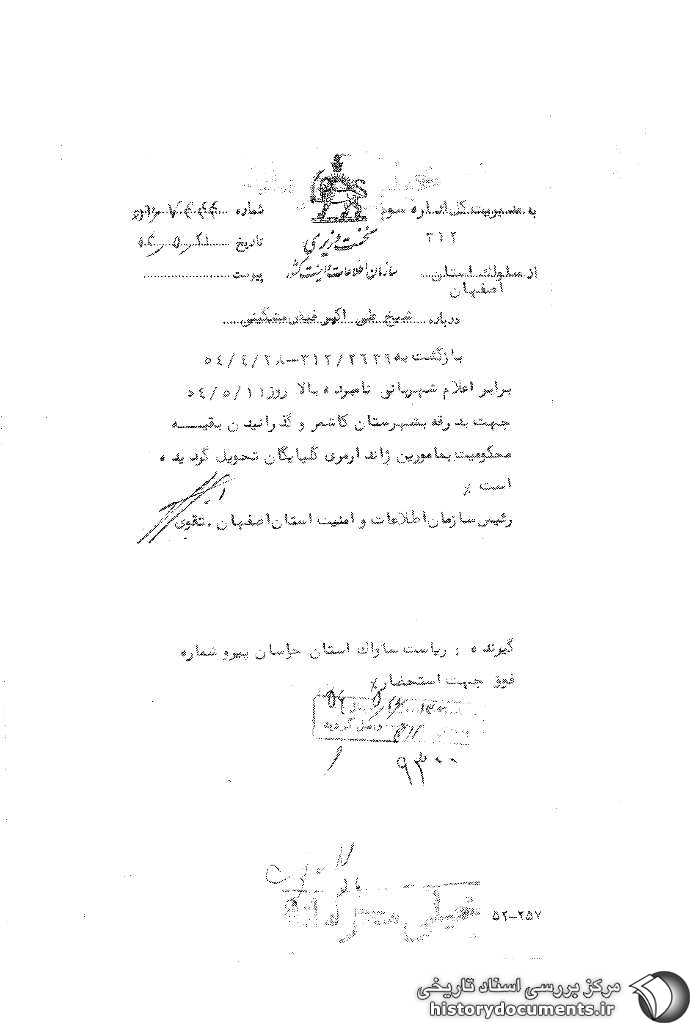 به مدیریت کل اداره سوم
شماره
۳۱۲
نخست وزیری
تاریخ
از ساواک استان
اصفهان
سازمان اطلاعات و امنیت کشور
پیوست
درباره شیخ علی اکبر فیض مشکینی
بازگشت به ۳۱۲/۲۶۳۶-۵۴/۴/۲۸
برابر اعلام شهربانی نامبرده بالا روز ۵۴/۵/۱۱
جهت بدرقه بشهرستان کاشمر و گذرانیدن بقیـــه
محکومیت بمامورین ژاندارمری گلپایگان تحویل گردیده
است ٪
رئیس سازمان اطلاعات و امنیت استان اصفهان . تقوی
گیرنده : ریاست ساواک استان خراسان پیرو شماره
فوق جهت استحضار٪
واصل گردید
۹۳۰۰
خیلی محرمانه
۵۲-۲۵۷
مرکز بررسی اسناد تاریخی
historydocuments.ir